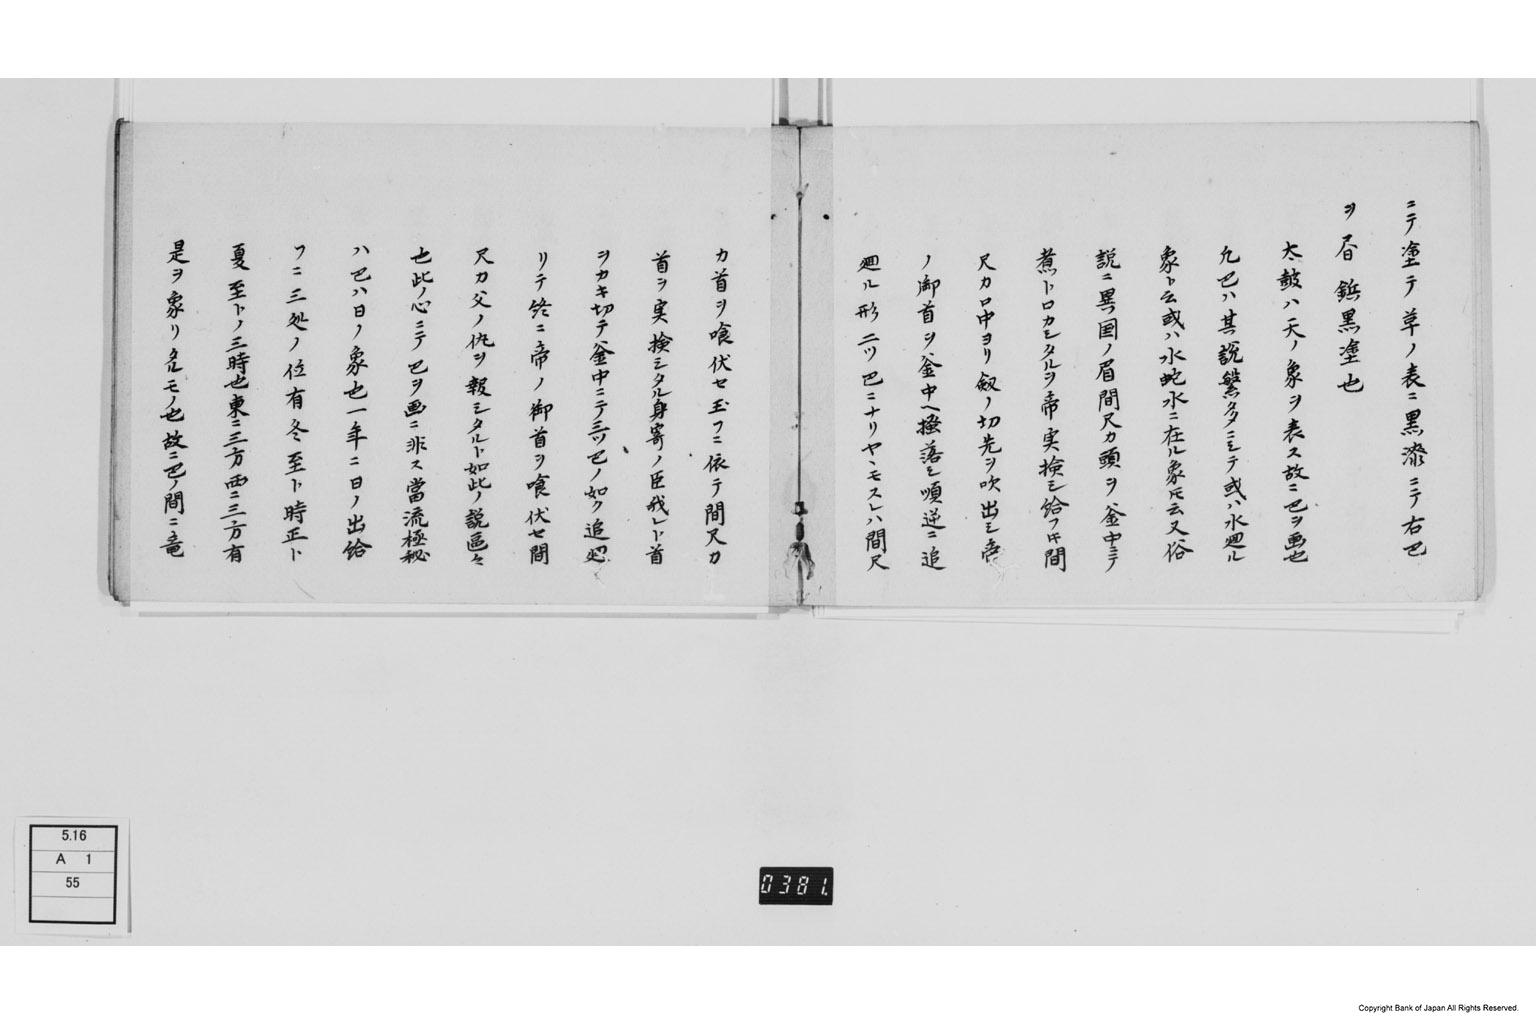 ニテ塗テ草ノ表ニ黒漆ニテ右巴
ヲ居鋲黒塗也
太鼓ハ天ノ象ヲ表ス故ニ巴ヲ画也
凡巴ハ其説繁多ニシテ或ハ水廻ル
象ト云或ハ水蛇水ニ在ル象トモ云又俗
説ニ異国ノ眉間尺カ頭ヲ釜中ニテ
煮トロカシタルヲ帝実検シ給フ時間
尺カ口中ヨリ剱ノ切先ヲ吹出シ帝
ノ御首ヲ釜中ヘ掻落シ順逆ニ追
廻ル形二ツ巴ニナリヤヽモスレハ間尺
カ首ヲ喰伏セ玉フニ依テ間尺カ
首ヲ実検シタル身寄ノ臣我レト首
ヲカキ切テ釜中ニテ三ツ巴ノ如ク追廻
リテ終ニ帝ノ御首ヲ喰伏セ間
尺カ父ノ仇ヲ報シタルト如此ノ説區々
也此ノ心ニテ巴ヲ画ニ非ス當流極秘
ハ巴ハ日ノ象也一年ニ日ノ出給
フニ三処ノ位有冬至ト時正ト
夏至トノ三時也東ニ三方西ニ三方有
是ヲ象リタルモノ也故ニ巴ノ間ニ竜
5.16
A 1
55
0381.
Copyright Bank of Japan All Rights Reserved.